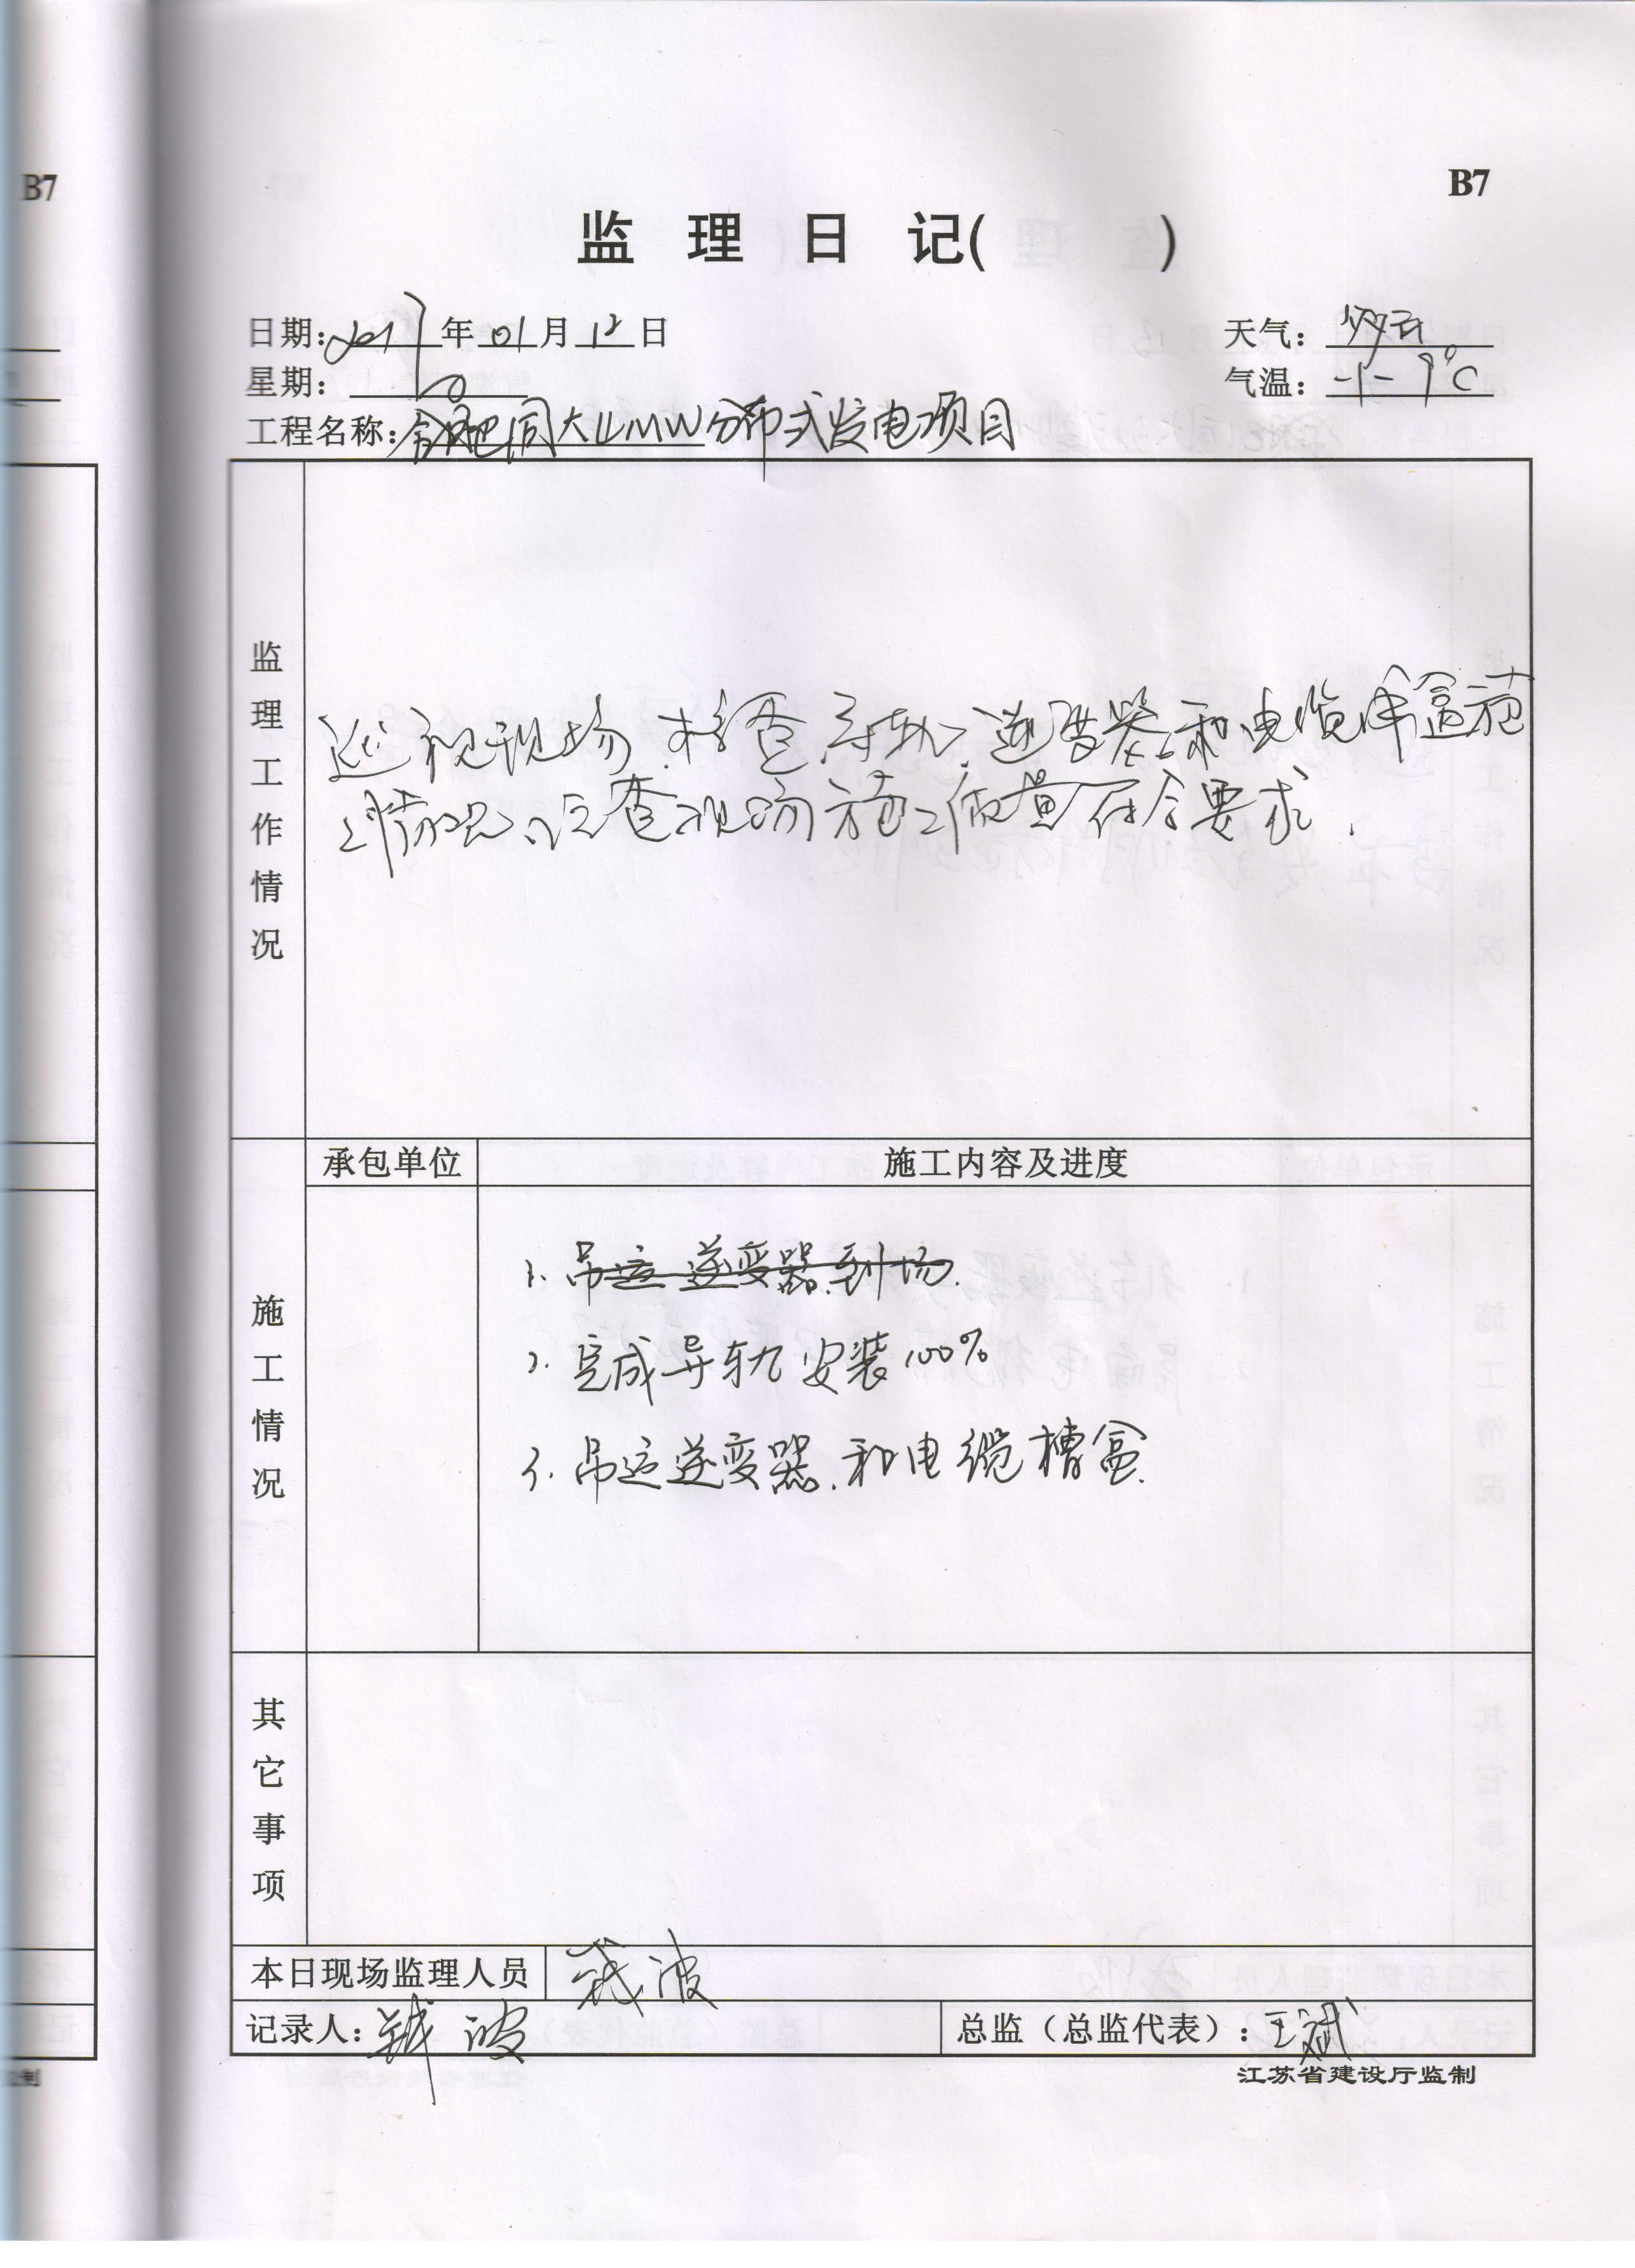 B7
B7
监 理 日 记( )
日期: 2017 年 01 月 12 日
天气: 多云
星期: 四
气温: -1-9℃
工程名称: 合肥同大11MW分布式发电项目
监理工作情况
巡视现场,核查导轨、逆变器和电缆槽盒施
工情况、经查现场施工质量符合要求.
承包单位
施工内容及进度
施工情况
1. 吊运逆变器到场.
2. 完成导轨安装100%
3. 吊运逆变器.和电缆槽盒.
其它事项
本日现场监理人员 钱波
记录人: 钱波
总监(总监代表): 王斌
江苏省建设厅监制